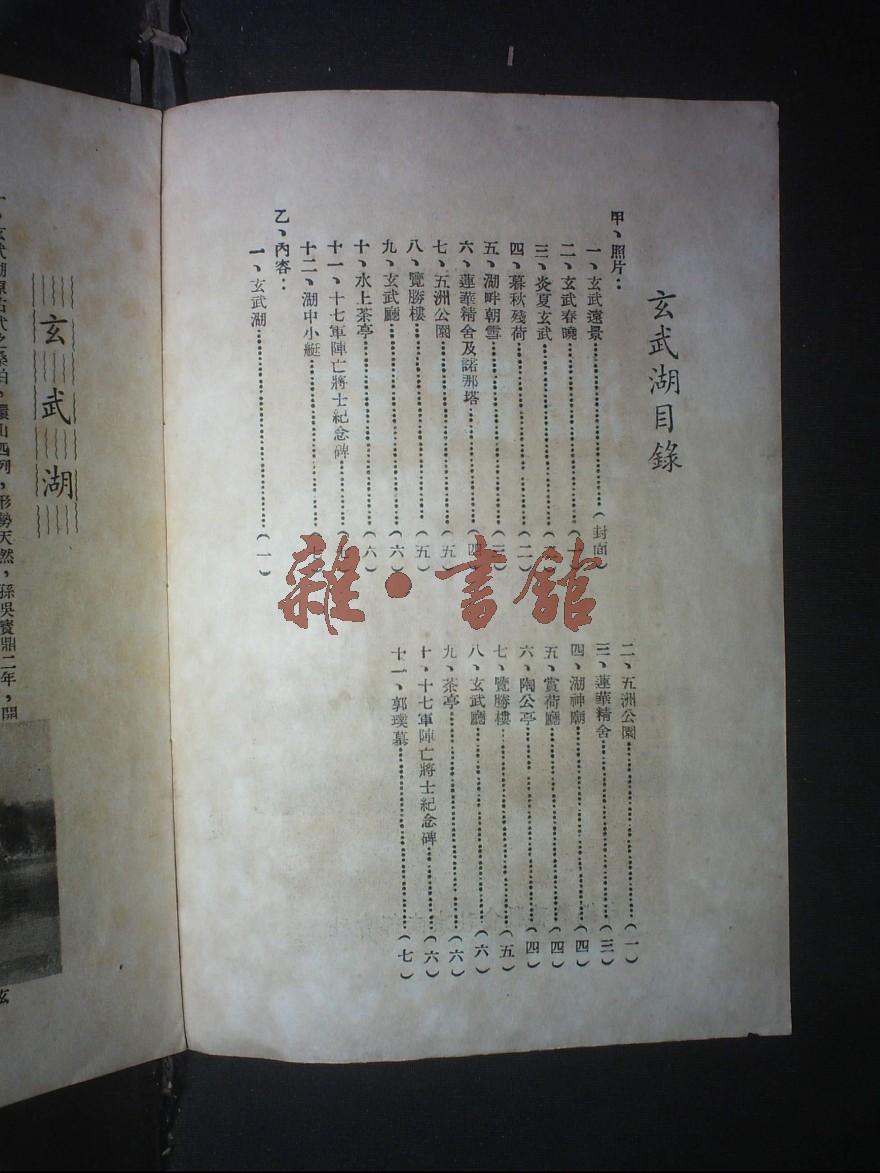 玄武湖目錄
甲、照片：
一、玄武遠景……（封面）
二、玄武春曉……（一）
三、炎夏玄武……
四、暮秋殘荷……（二）
五、湖畔朝雪……（三）
六、蓮華精舍及諾那塔……（四）
七、五洲公園……（五）
八、覽勝樓……（五）
九、玄武廳……（六）
十、水上茶亭……（六）
十一、十七軍陣亡將士紀念碑……
十二、湖中小艇……（七）
乙、內容：
一、玄武湖……（一）
二、五洲公園……（一）
三、蓮華精舍……（三）
四、湖神廟……（四）
五、賞荷廳……（四）
六、陶公亭……（四）
七、覽勝樓……（五）
八、玄武廳……（六）
九、茶亭……（六）
十、十七軍陣亡將士紀念碑……（六）
十一、郭璞墓……（七）
雜·書館
玄武湖
環山四列，形勢天然，孫吳寶鼎二年，開
玄